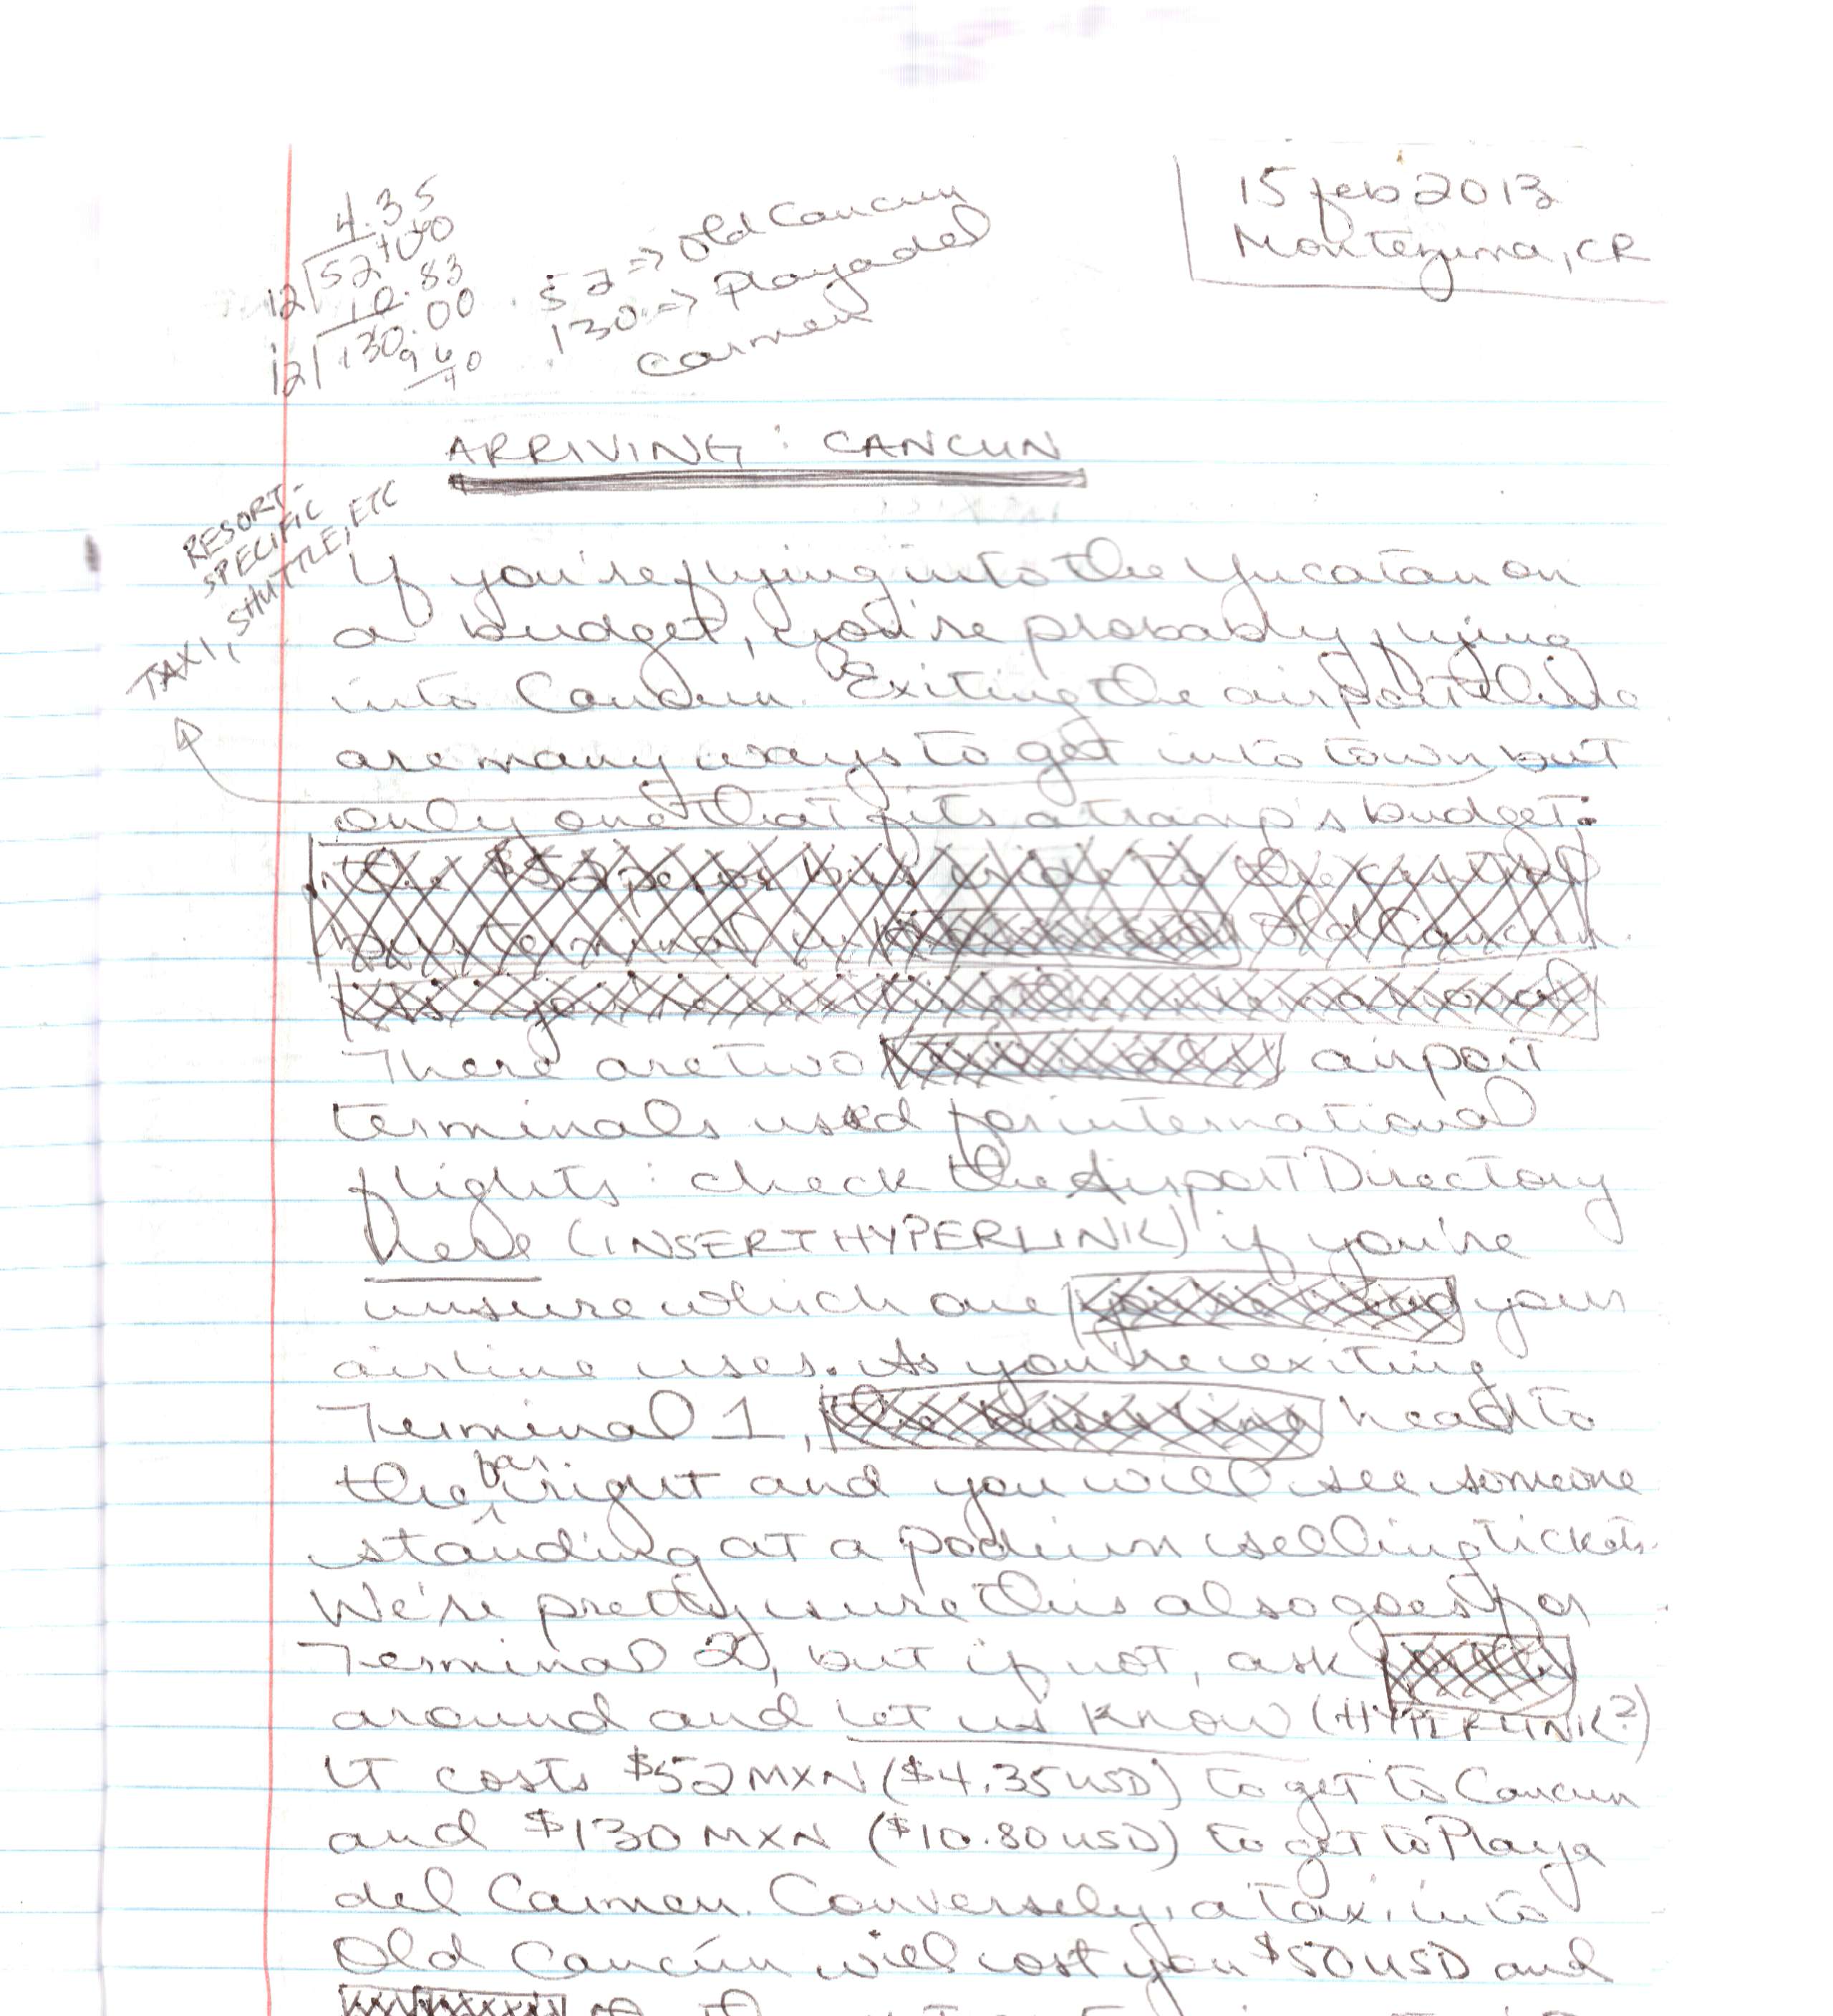 15 feb 2013
Montezuma, CR
4.35
12 52.00
10.83
12 130.00
9 60
40
52 => Old Cancun
130 => Playa del
Carmen
ARRIVING: CANCUN
RESORT-
SPECIFIC
TAXI, SHUTTLE, ETC
If you're flying into the Yucatan on
a budget, you're probably flying
into Cancun. Exiting the airport there
are many ways to get into town but
only one that fits a tramp's budget:
the $52 peso bus ride to the central
bus terminal in Old Cancun.
As you're exiting the international
There are two airport
terminals used for international
flights: check the Airport Directory
here (INSERT HYPERLINK) if you're
unsure which one your
airline uses. As you're exiting
Terminal 1, head to
the far right and you will see someone
standing at a podium selling tickets.
We're pretty sure this also goes for
Terminal 2, but if not, ask
around and let us know (HYPERLINK?)
It costs $52 MXN ($4.35 USD) to get to Cancun
and $130 MXN ($10.80 USD) to get to Playa
del Carmen. Conversely, a taxi into
Old Cancún will cost you $50 USD and